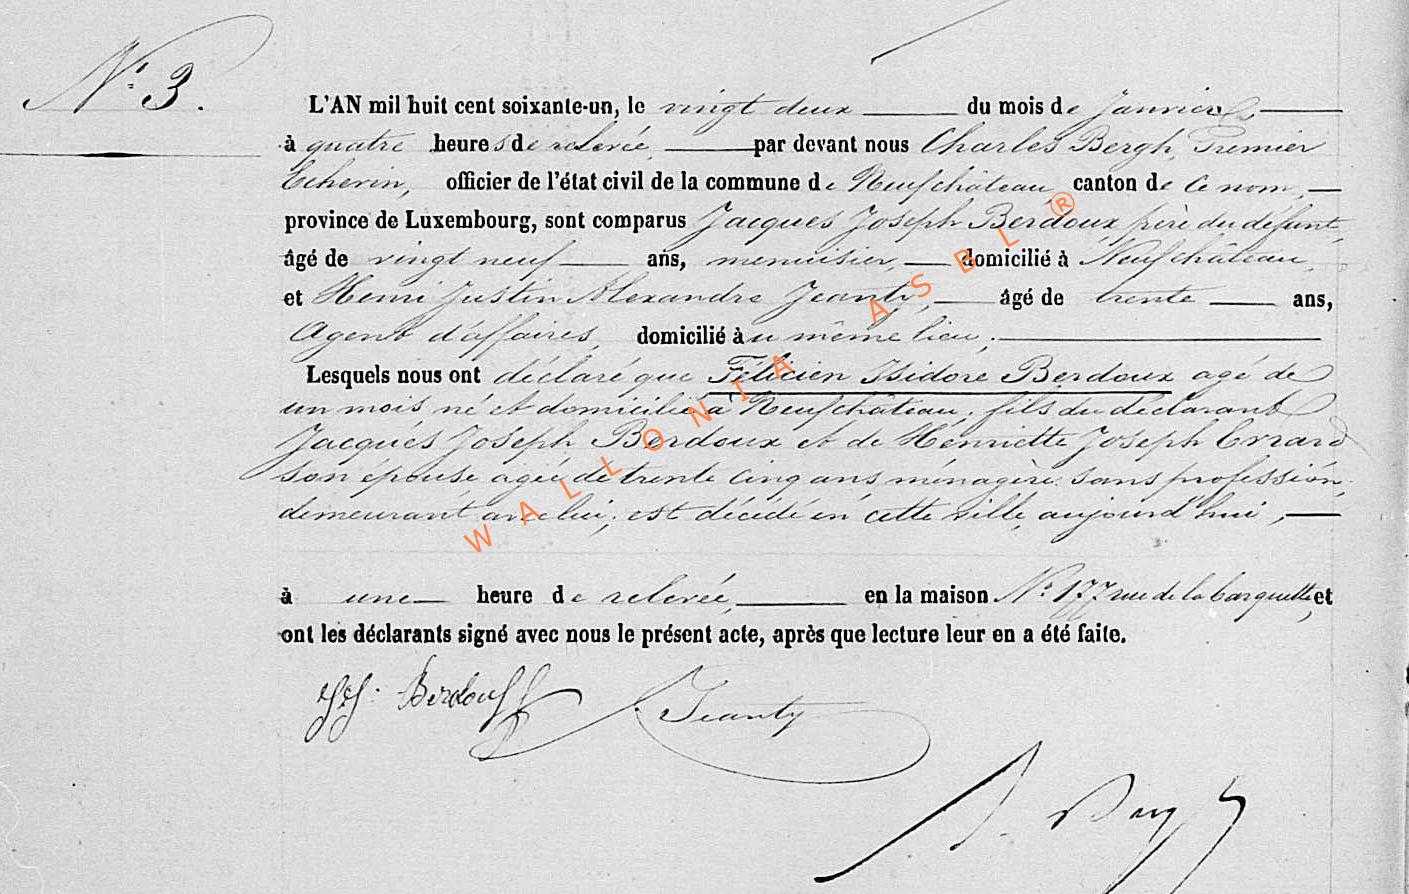 N° 3.
L'AN mil huit cent soixante-un, le vingt deux du mois de Janvier,
à quatre heures de relevée, par devant nous Charles Bergh, Premier
Echevin, officier de l'état civil de la commune de Neufchâteau canton de ce nom,
province de Luxembourg, sont comparus Jacques Joseph Berdoux père du défunt,
âgé de vingt neuf ans, menuisier, domicilié à Neufchâteau,
et Henri Justin Alexandre Jeanty, âgé de trente ans,
Agent d'affaires, domicilié au même lieu;
Lesquels nous ont déclaré que Félicien Isidore Berdoux agé de
un mois né et domicilié à Neufchâteau, fils du déclarant
Jacques Joseph Berdoux et de Henriette Joseph Evrard
son épouse agée de trente cinq ans ménagère sans profession,
demeurant avec lui; est décédé en cette ville, aujourd'hui,
à une heure de relevée, en la maison N° 177 rue de la barquette, et
ont les déclarants signé avec nous le présent acte, après que lecture leur en a été faite.
JJ. Berdoux Jeanty
Bergh
WALLONIA ASBL ®